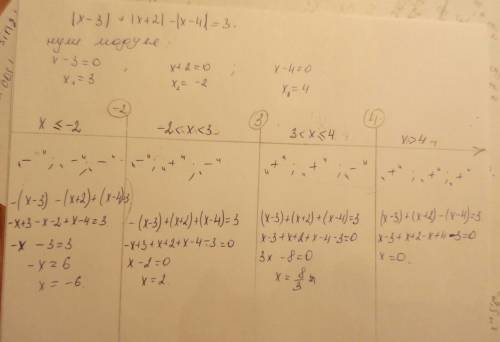 |x-3| + |x+2| - |x-4| = 3.
нули модуля.
x-3=0 ; x+2=0 ; x-4=0
x₁=3 x₂=-2 x₃=4
-2 3 4
x ≤ -2 -2 < x < 3 3 < x ≤ 4 x > 4
„-" ; „-" ; „-" „-" ; „+" ; „-" „+" ; „+" ; „-" „+" ; „+" ; „+"
-(x-3) - (x+2) + (x-4)=3
-x+3-x-2+x-4=3
-x-3=3
-x=6
x=-6.
-(x-3)+(x+2)+(x-4)=3
-x+3+x+2+x-4-3=0
x-2=0
x=2.
(x-3)+(x+2)+(x-4)=3
x-3+x+2+x-4-3=0
3x-8=0
x=8/3
(x-3)+(x+2)-(x-4)=3
x-3+x+2-x+4-3=0
x=0.